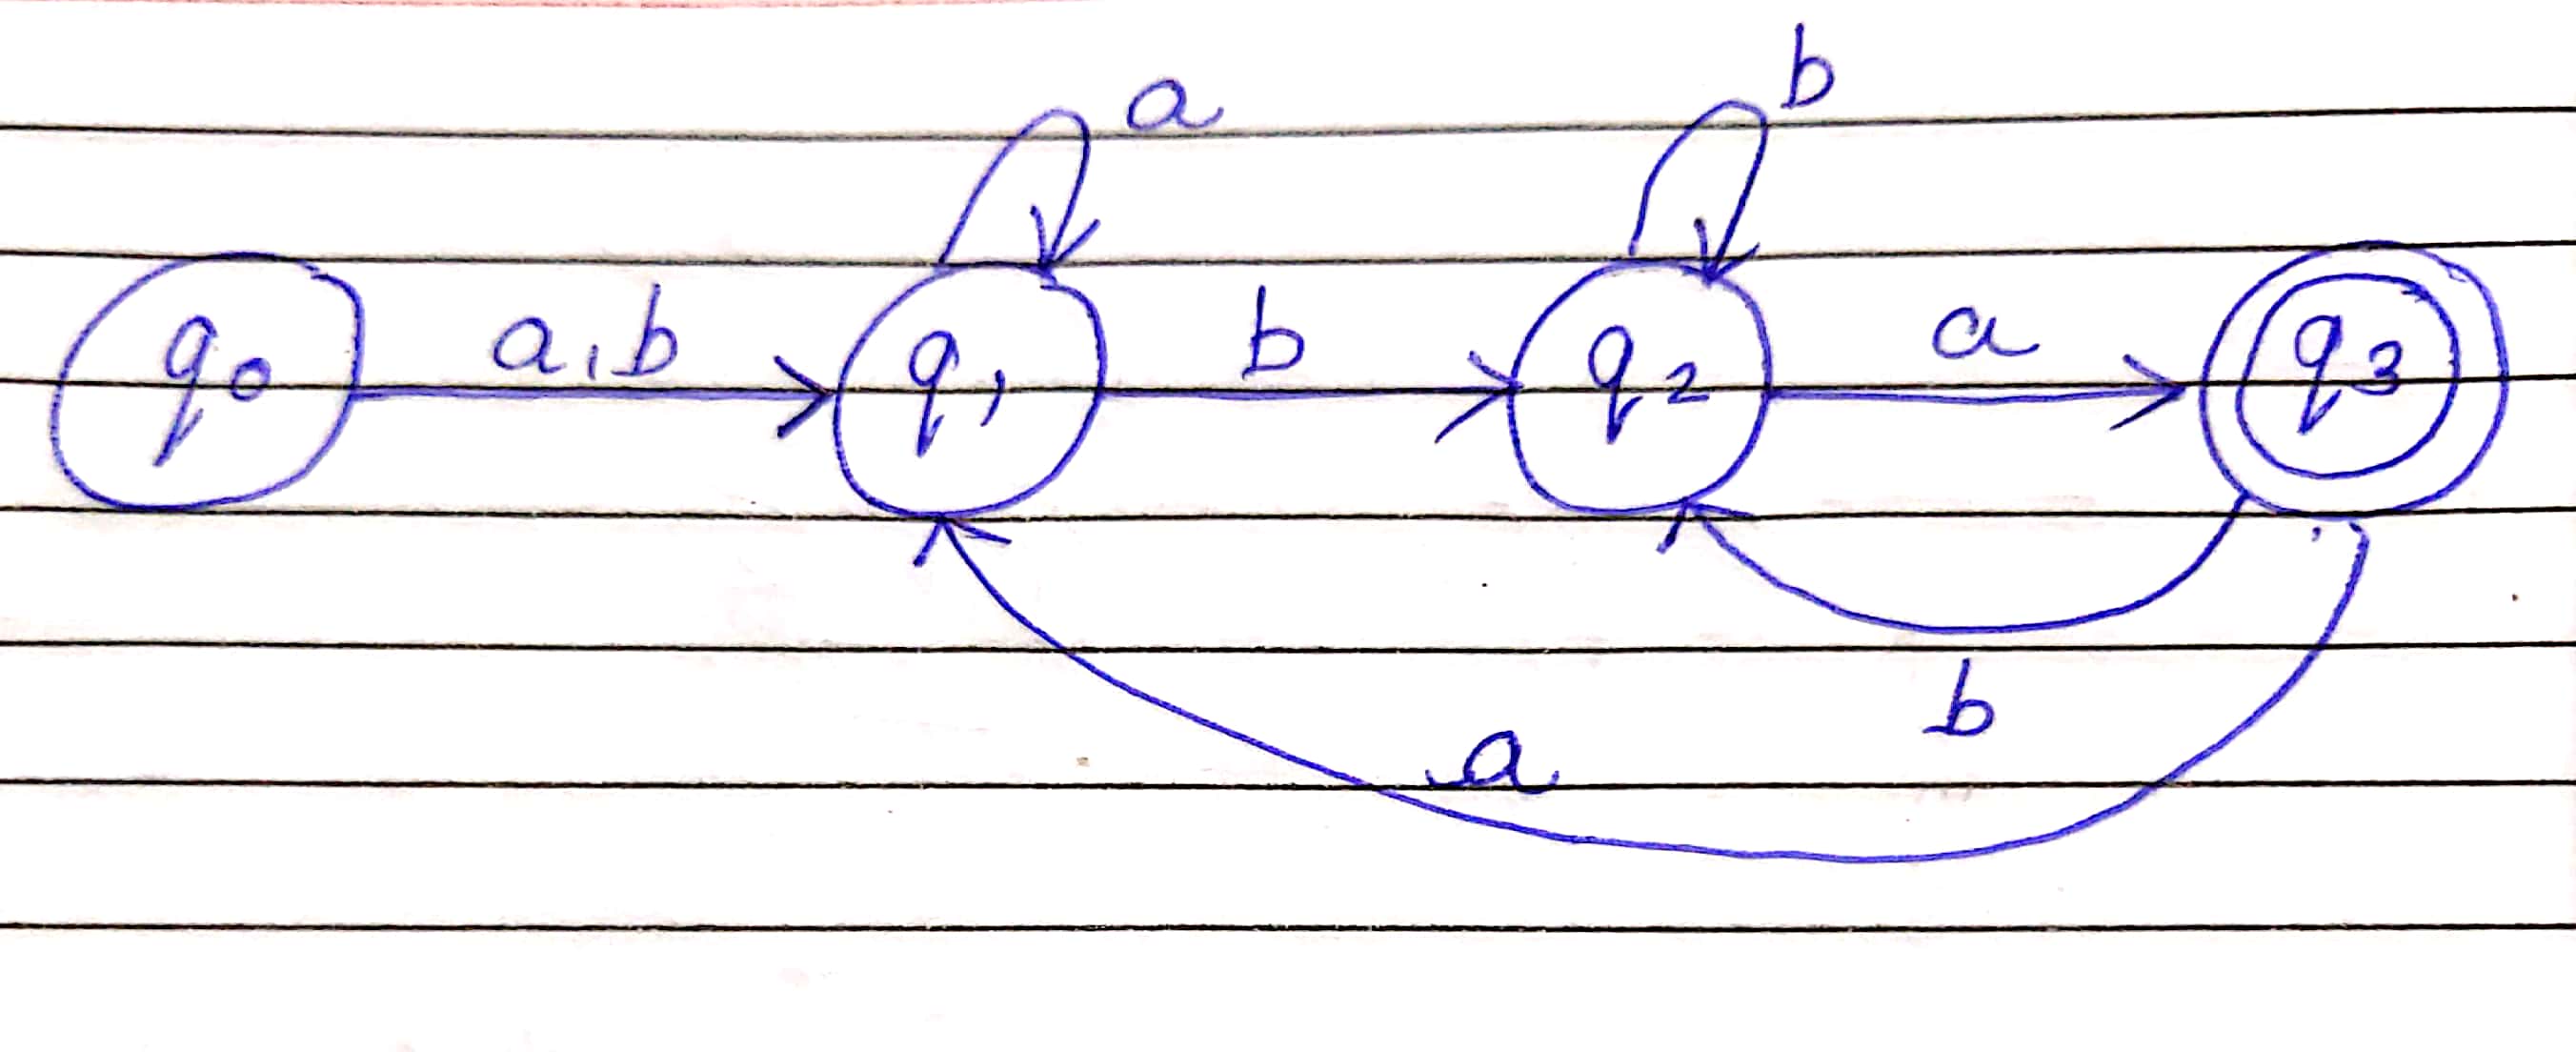 a b
q0 a,b q1 b q2 a q3
b
a